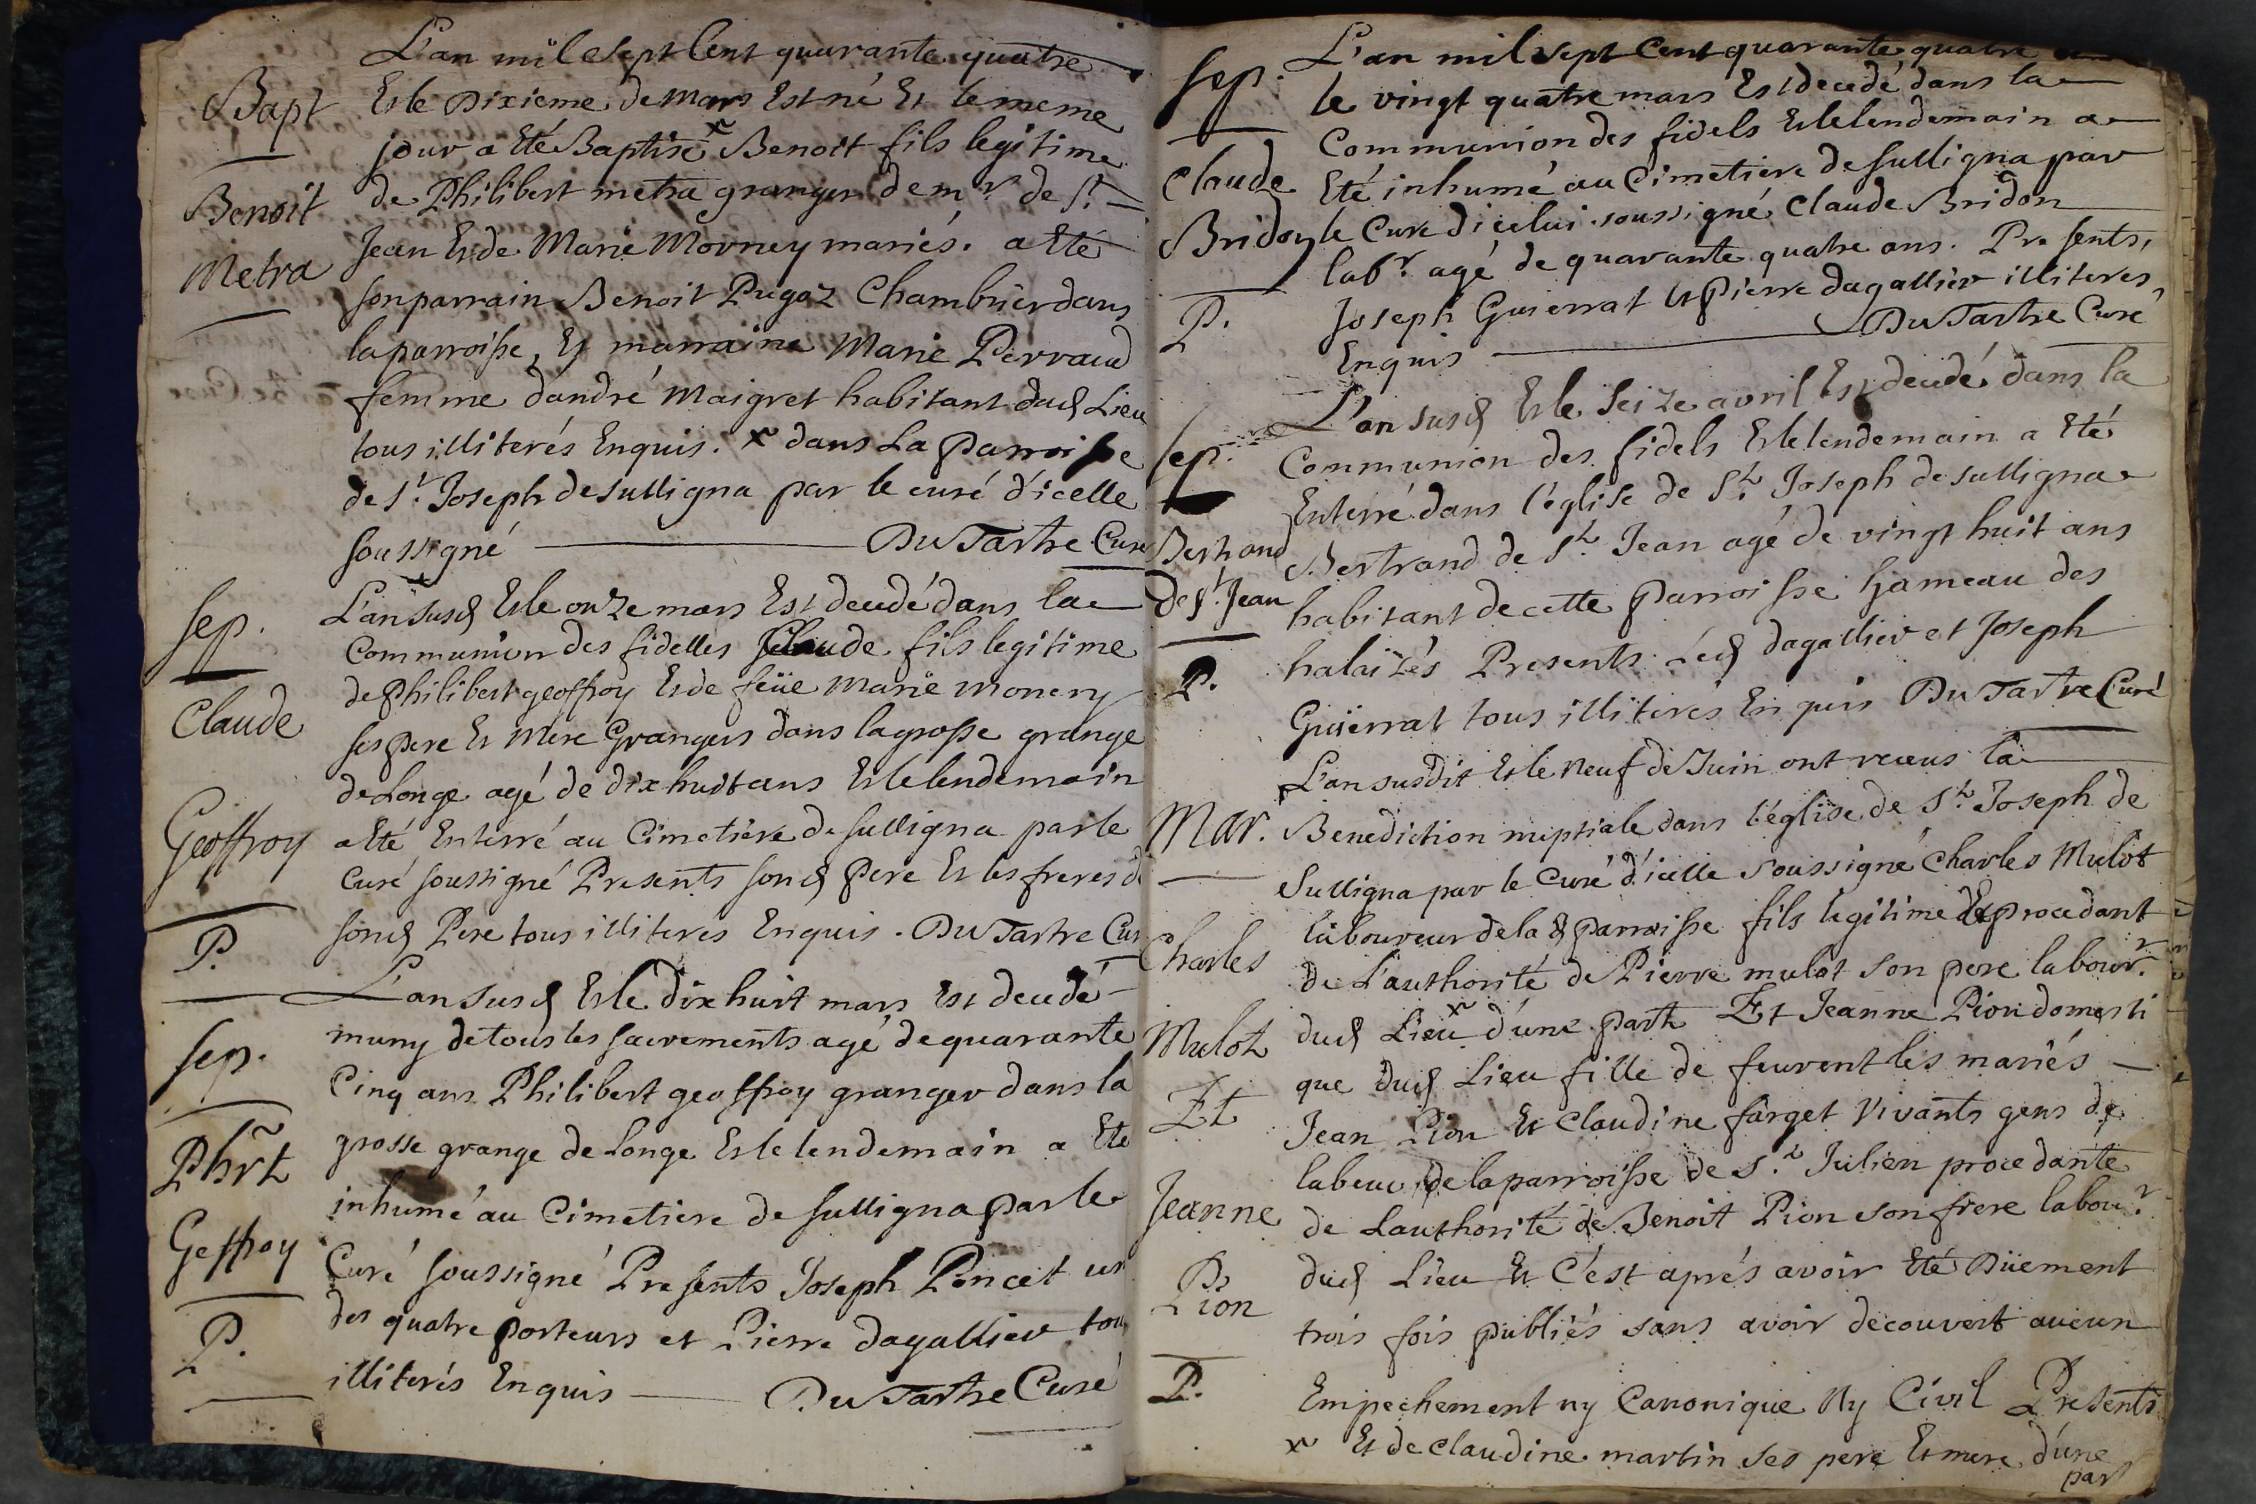 L'an mil sept Cent quarante quatre
Bapt
Et le Dixieme de Mars Est né Et le meme
jour a Eté Baptisé x Benoit fils legitime
Benoit
de Philibert metra granger de mr. de St.
Metra
Jean Et de Marie Morney mariés. a Eté
son parrain Benoit Pugoz Chambrier dans
la parroisse, Et marraine Marie Perraud
femme d'andré Maigret habitant dud Lieu
tous illiterés Enquis. x dans La parroisse
de St. Joseph de sulligna par le curé d'icelle
soussigné Du Tartre Curé
Sep.
L'an susd Et le onze mars Est decedé dans la
Communion des fidelles Claude fils legitime
Claude
de Philibert geoffroy Et de feüe Marie monery
ses pere Et Mere Grangers dans la grosse grange
de Longe agé de dix huit ans Et le lendemain
Geoffroy
a Eté Enterré au Cimetiere de sulligna par le
Curé soussigné Presents sond Pere Et les freres de
sond Pere tous illiteres Enquis. Du Tartre Cur
P.
L'an susd Et le dix huit mars Est decedé
Sep.
muny de tous les sacrements agé de quarante
Cinq ans Philibert geoffroy granger dans la
Phrt
grosse grange de Longe Et le lendemain a Eté
inhumé au Cimetiere de sulligna par le
Geffroy
Curé soussigné Presents Joseph Poncet un
des quatre porteurs et Pierre dagallier tous
P.
illiterés Enquis Du Tartre Curé
L'an mil sept Cent quarante quatre
Sep.
le vingt quatre mars Est decedé dans la
Communion des fidels Et le lendemain a
Claude
Eté inhumé au Cimetiere de sulligna par
Bridon
le Curé d'icelui soussigné Claude Bridon
labr. agé de quarante quatre ans. Presents,
P.
Joseph Guierrat Et Pierre dagallier illiteres,
Enquis Du Tartre Curé
L'an susd Et le seize avril Est decedé dans la
Sep.
Communion des fidels Et le lendemain a Eté
Enterré dans l'église de St. Joseph de sulligna
Bertrand
Bertrand de St. Jean agé de vingt huit ans
De St. Jean
habitant de cette parroisse hameau des
halaizés Presents Led dagallier et Joseph
P.
Guïerrat tous illiterés Enquis Du Tartre Curé
L'an susdit Et le Neuf de Juin ont receus la
Mar.
Benediction nuptiale dans l'église de St. Joseph de
Sulligna par le Curé d'icelle soussigné Charles Mulot
laboureur de la d parroisse fils legitime Et procedant
Charles
de L'authorité de Pierre mulot son pere labour.
Mulot
dud Lieu x d'une part Et Jeanne Pion domesti
Et
que dud Lieu fille de feurent les mariés
Jean Pion Et Claudine farget Vivants gens de
labeur de la parroisse de St. Julien procedante
Jeanne
de Lauthorité de Benoit Pion son frere labour.
dud Lieu Et C'est aprés avoir Eté Düement
Pion
trois fois publiés sans avoir decouvert aucun
P.
Empechement ny Canonique Ny Civil Presents
x Et de Claudine martin ses pere Et mere d'une
part